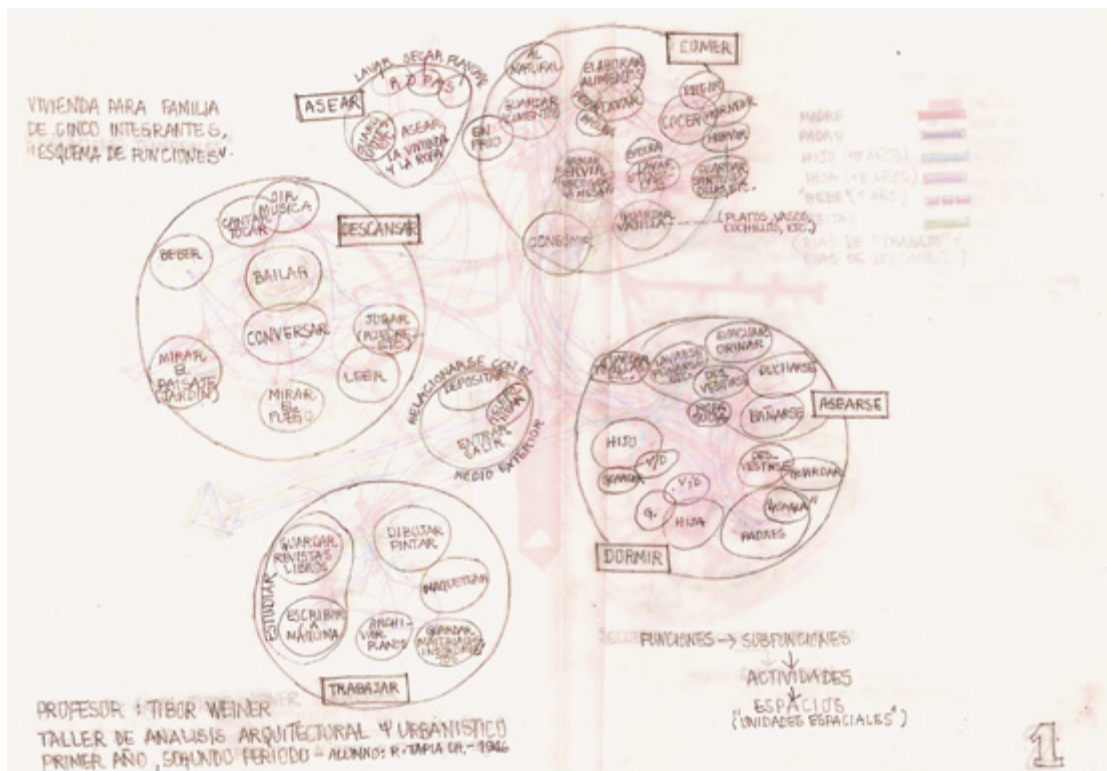 VIVIENDA PARA FAMILIA
DE CINCO INTEGRANTES,
"ESQUEMA DE FUNCIONES".
ASEAR
LAVAR SECAR PLANCHAR
ROPAS
ASEAR
LA VIVIENDA
Y LA ROPA
COMER
AL
NATURAL
GUARDAR
ALIMENTOS
EN
FRIO
ELABORAR
ALIMENTOS
COCER
HORNEAR
SERVIR
LAVAR
GUARDAR
CONSUMIR
GUARDAR
VAJILLA
(PLATOS, VASOS,
CUCHILLOS, ETC.)
MADRE
PADRE
HIJO
HIJA
"BEBE"
(DIAS DE "TRABAJO" Y
DIAS DE DESCANSO)
DESCANSAR
OIR
MUSICA
CANTAR
TOCAR
BEBER
BAILAR
CONVERSAR
JUGAR
LEER
MIRAR
EL
PAISAJE
(JARDIN)
MIRAR
EL
FUEGO
RELACIONARSE CON EL
MEDIO EXTERIOR
DEPOSITAR
ENTRAR
SALIR
ASEARSE
ORINAR
DUCHARSE
BAÑARSE
HIJO
V/D
GUARDAR
V/D
G.
HIJA
DES-
VESTIRSE
GUARDAR
PADRES
DORMIR
ESTUDIAR
GUARDAR
REVISTAS
LIBROS
ESCRIBIR
A
MÁQUINA
DIBUJAR
PINTAR
MAQUETEAR
ARCHI-
VAR
PLANOS
GUARDAR
MATERIALES
TRABAJAR
FUNCIONES → SUBFUNCIONES
ACTIVIDADES
ESPACIOS
("UNIDADES ESPACIALES")
PROFESOR : TIBOR WEINER
TALLER DE ANALISIS ARQUITECTURAL Y URBANISTICO
PRIMER AÑO, SEGUNDO PERIODO - ALUMNO: R. TAPIA CH. - 1946
1